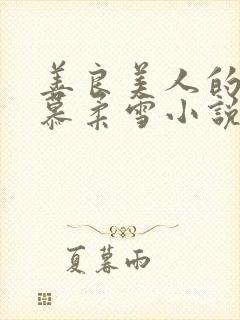 善良美人的
慕柔雪小說
夏暮雨